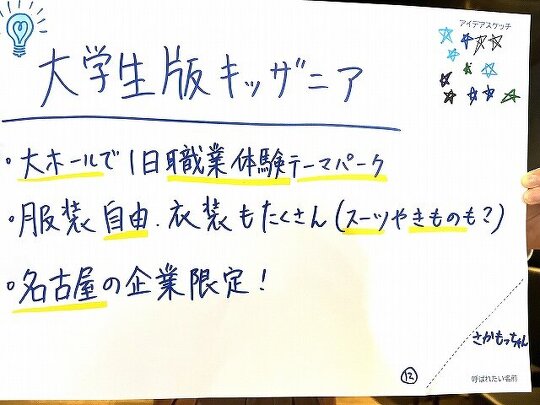 アイデアスケッチ
大学生版キッザニア
・大ホールで1日職業体験テーマパーク
・服装自由.衣装もたくさん(スーツやきものも?)
・名古屋の企業限定!
さかもっちゃん
⑫
呼ばれたい名前